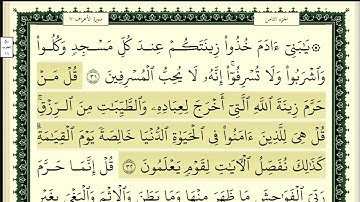 الجزء الثامن سورة الأعراف ٧
۞ يَٰبَنِىٓ ءَادَمَ خُذُوا۟ زِينَتَكُمْ عِندَ كُلِّ مَسْجِدٍ وَكُلُوا۟
وَٱشْرَبُوا۟ وَلَا تُسْرِفُوٓا۟ ۚ إِنَّهُۥ لَا يُحِبُّ ٱلْمُسْرِفِينَ ٣١ قُلْ مَنْ
حَرَّمَ زِينَةَ ٱللَّهِ ٱلَّتِىٓ أَخْرَجَ لِعِبَادِهِۦ وَٱلطَّيِّبَٰتِ مِنَ ٱلرِّزْقِ ۚ
قُلْ هِىَ لِلَّذِينَ ءَامَنُوا۟ فِى ٱلْحَيَوٰةِ ٱلدُّنْيَا خَالِصَةً يَوْمَ ٱلْقِيَٰمَةِ ۗ
كَذَٰلِكَ نُفَصِّلُ ٱلْءَايَٰتِ لِقَوْمٍ يَعْلَمُونَ ٣٢ قُلْ إِنَّمَا حَرَّمَ
رَبِّىَ ٱلْفَوَٰحِشَ مَا ظَهَرَ مِنْهَا وَمَا بَطَنَ وَٱلْإِثْمَ وَٱلْبَغْىَ بِغَيْرِ